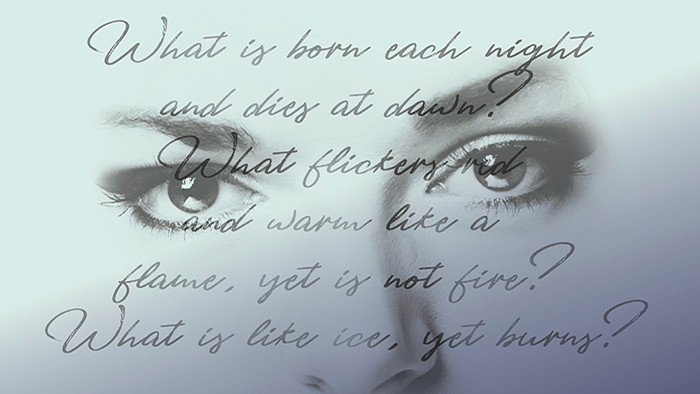 What is born each night
and dies at dawn?
What flickers red
and warm like a
flame, yet is not fire?
What is like ice, yet burns?